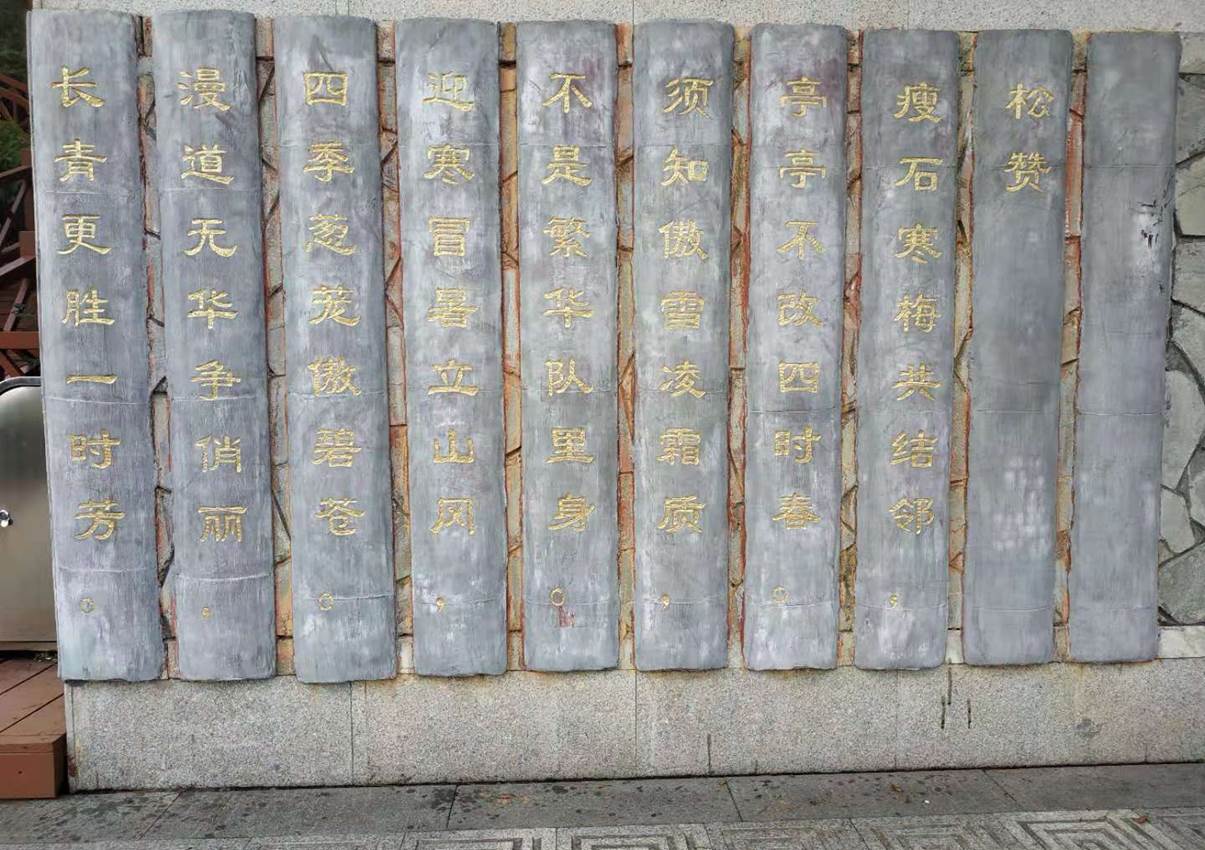 松赞
瘦石寒梅共结邻，
亭亭不改四时春。
须知傲雪凌霜质，
不是繁华队里身。
迎寒冒暑立山冈，
四季葱茏傲碧苍。
漫道无华争俏丽，
长青更胜一时芳。